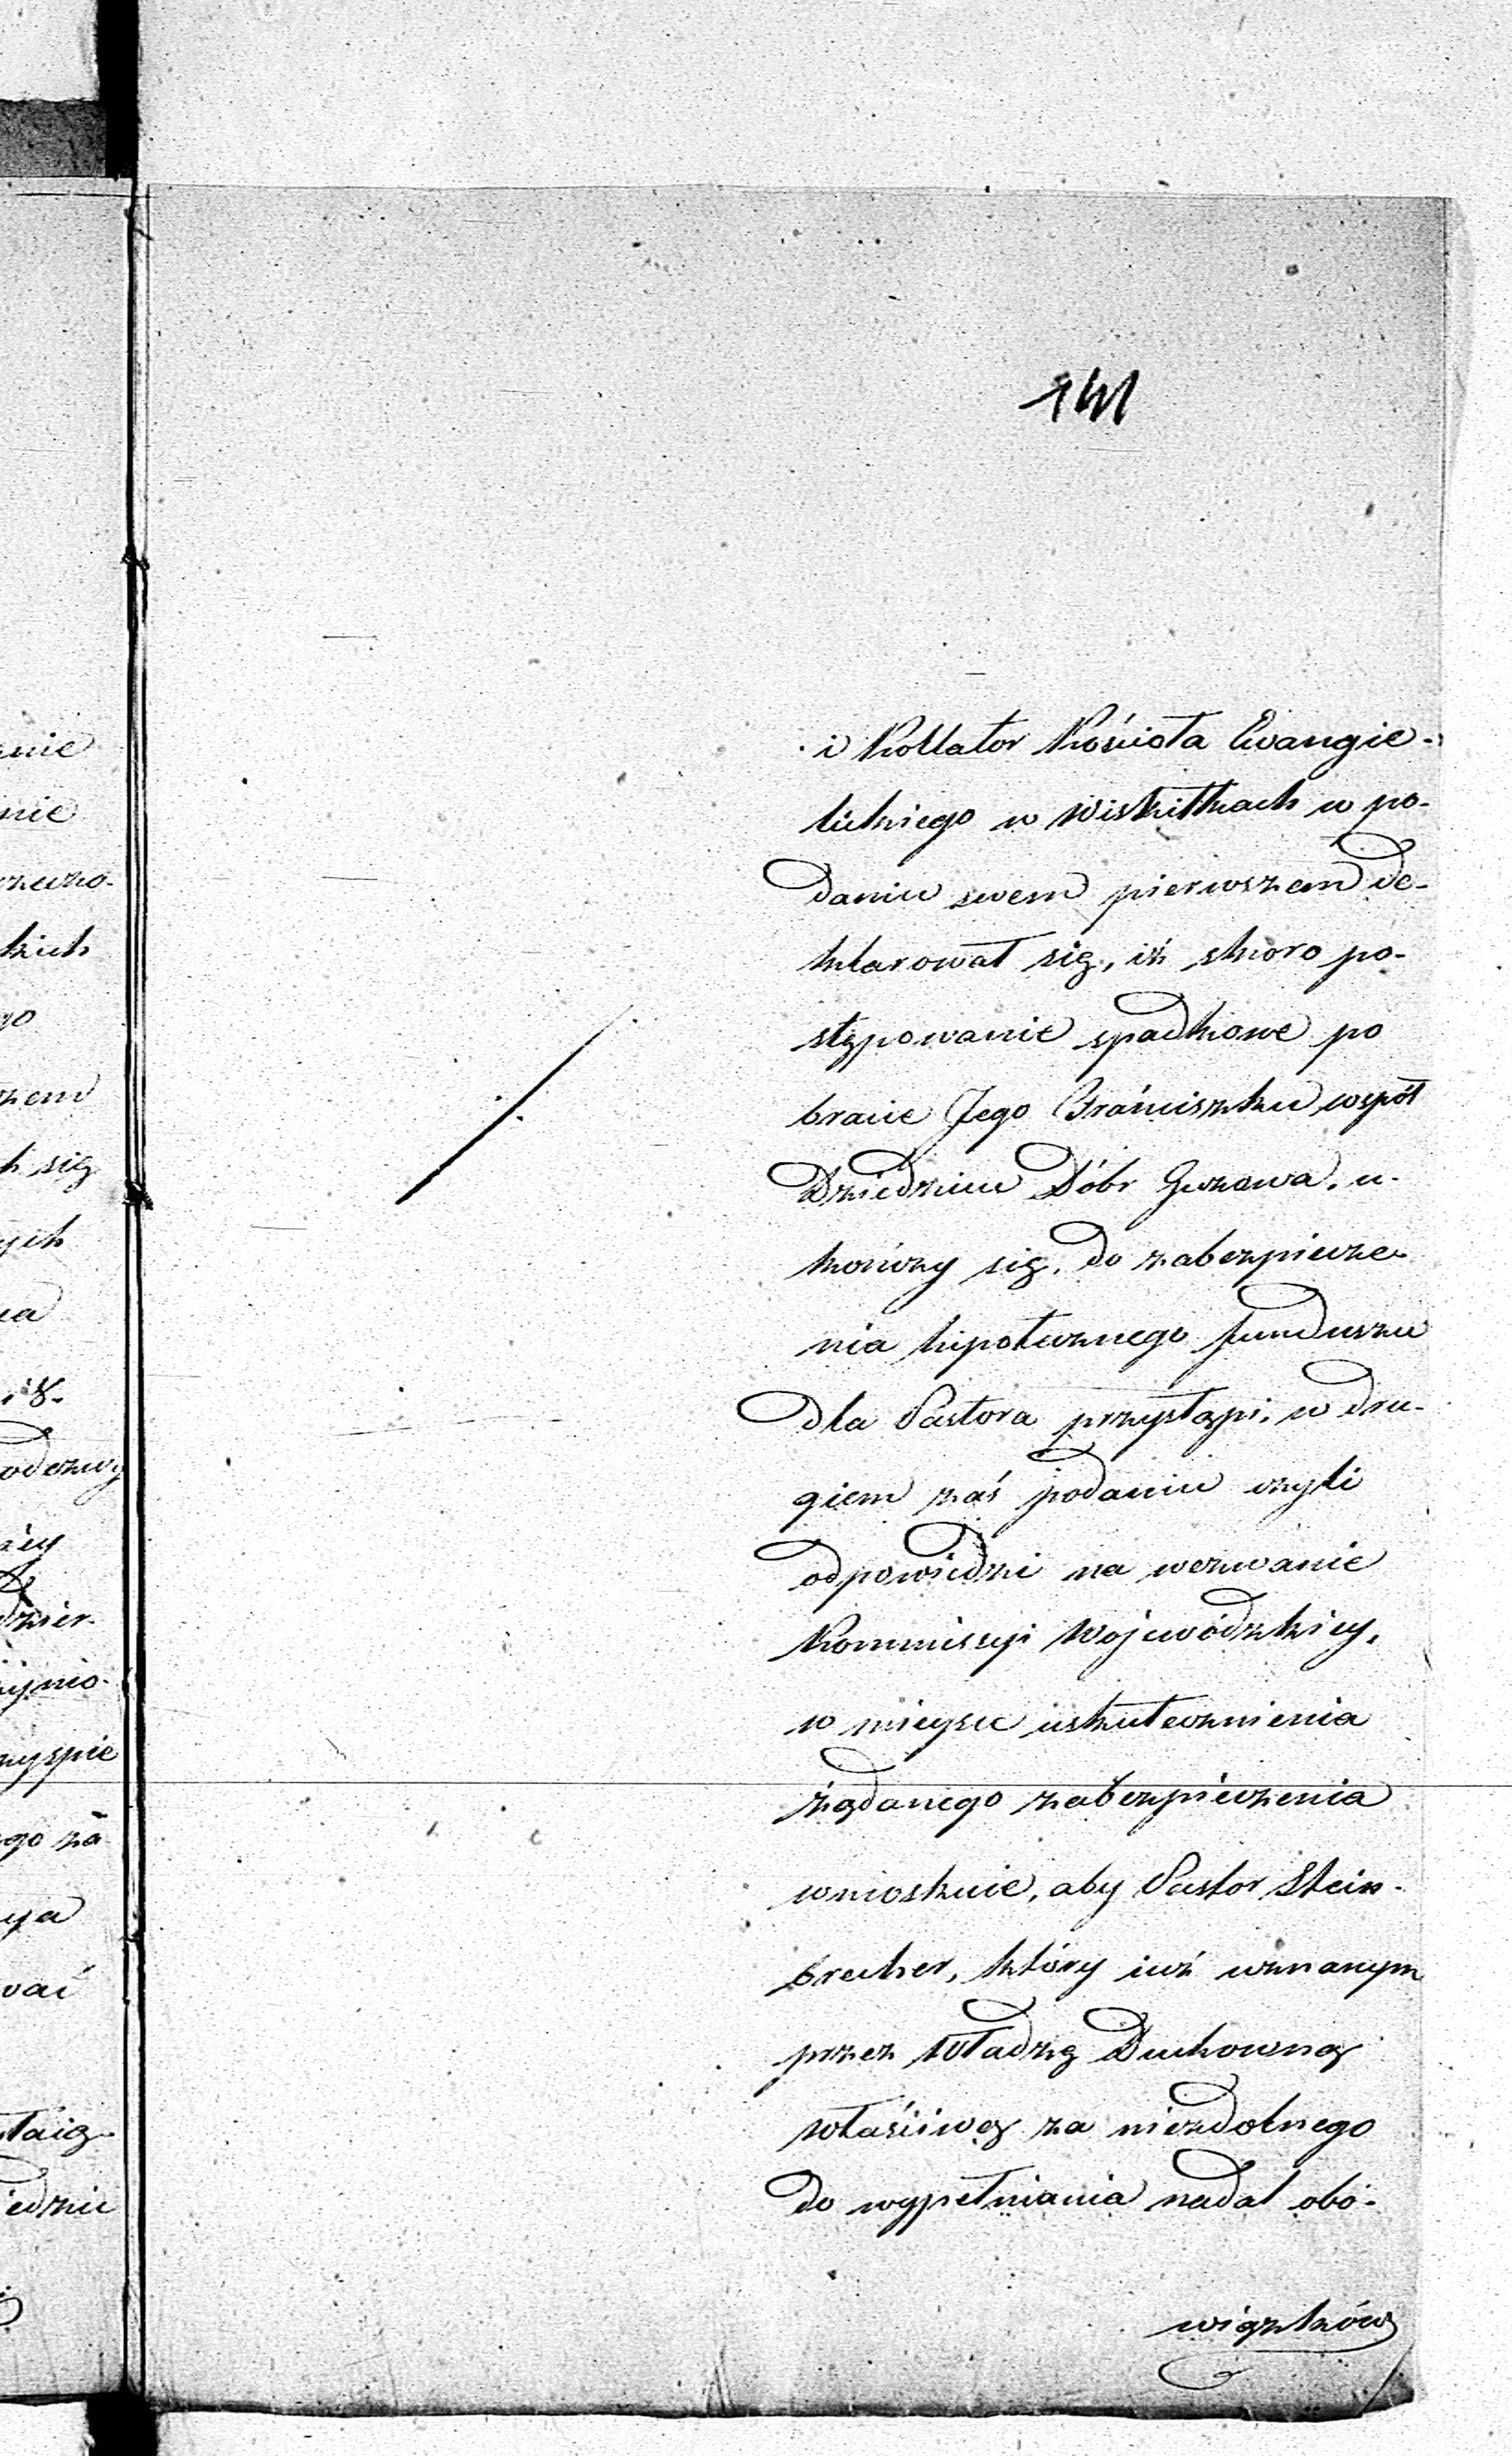 141
i Kollator Kościoła Ewangie-
lickiego w Wiskitkach w po-
daniu swem pierwszem de-
klarował się, iż skoro po-
stępowanie spadkowe po
bracie Jego Franciszku współ
Dziedzicu Dóbr Guzowa, u-
kończy się, do zabezpiecze-
nia hipotecznego funduszu
dla Pastora przystąpi, w dru-
giem zaś podaniu czyli
odpowiedzi na wezwanie
Kommissyi Wojewódzkiey,
w mieysce uskutecznienia
żądanego zabezpieczenia
wnioskuie, aby Pastor Stein-
brecher, który iuż uznanym
przez Władzę Duchowną
właściwą za niezdolnego
do wypełniania nadal obo-
wiązków
anie
nie
kich
go
zem
h się
ych
odezwy
dzier-
go za